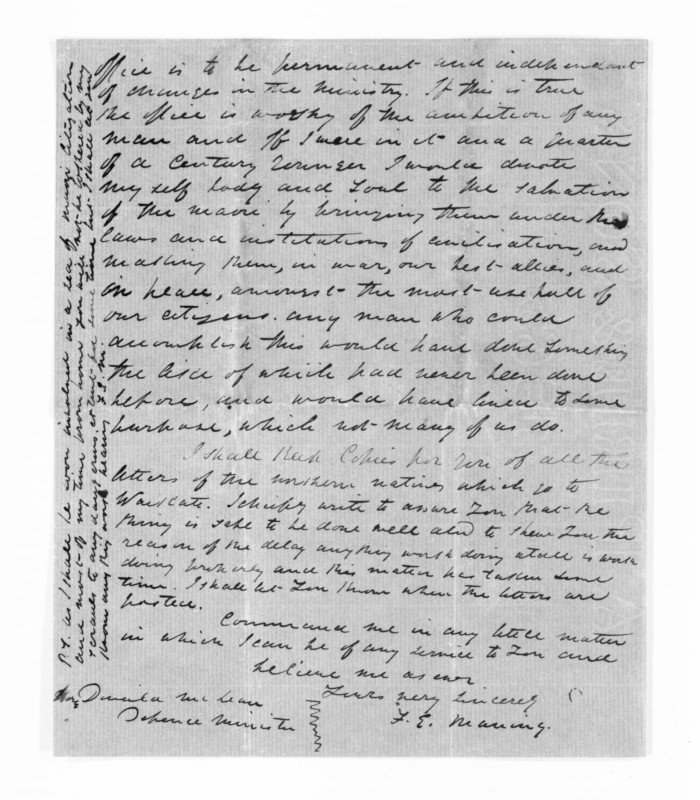 office is to be permanent and independant
of changes in the ministry. If this is true
the office is worthy of the ambition of any
man and If I were in it and a quarter
of a Century Younger I would devote
my self body and Soul to the salvation
of the maori by bringing them under the
laws and institutions of civilisation, and
making them, in war, our best allies, and
in peace, amongst the most use full of
our citizens. any man who could
accomplish this would have done something
the like of which had never been done
before, and would have lived to some
purpose, which not many of us do.
I shall Keep Copies for you of all the
letters of the northern natives which go to
Waikato. I chiefly write to assure You that the
thing is safe to be done well and to shew You the
reason of the delay any thing worth doing at all is worth
doing properly and this matter has taken some
time. I shall let You Know when the letters are
posted.
Command me in any little matter
in which I can be of any service to You and
believe me as ever
Yours very Sincerely
F. E. Maning.
Hon Donald McLean
Defence Minister
P.S. as I shall be soon involved in a sea of maori litigation
and most of my time from home you will not be bothered by my
for some time but I shall let you
Know any thing worth hearing F.E.M.